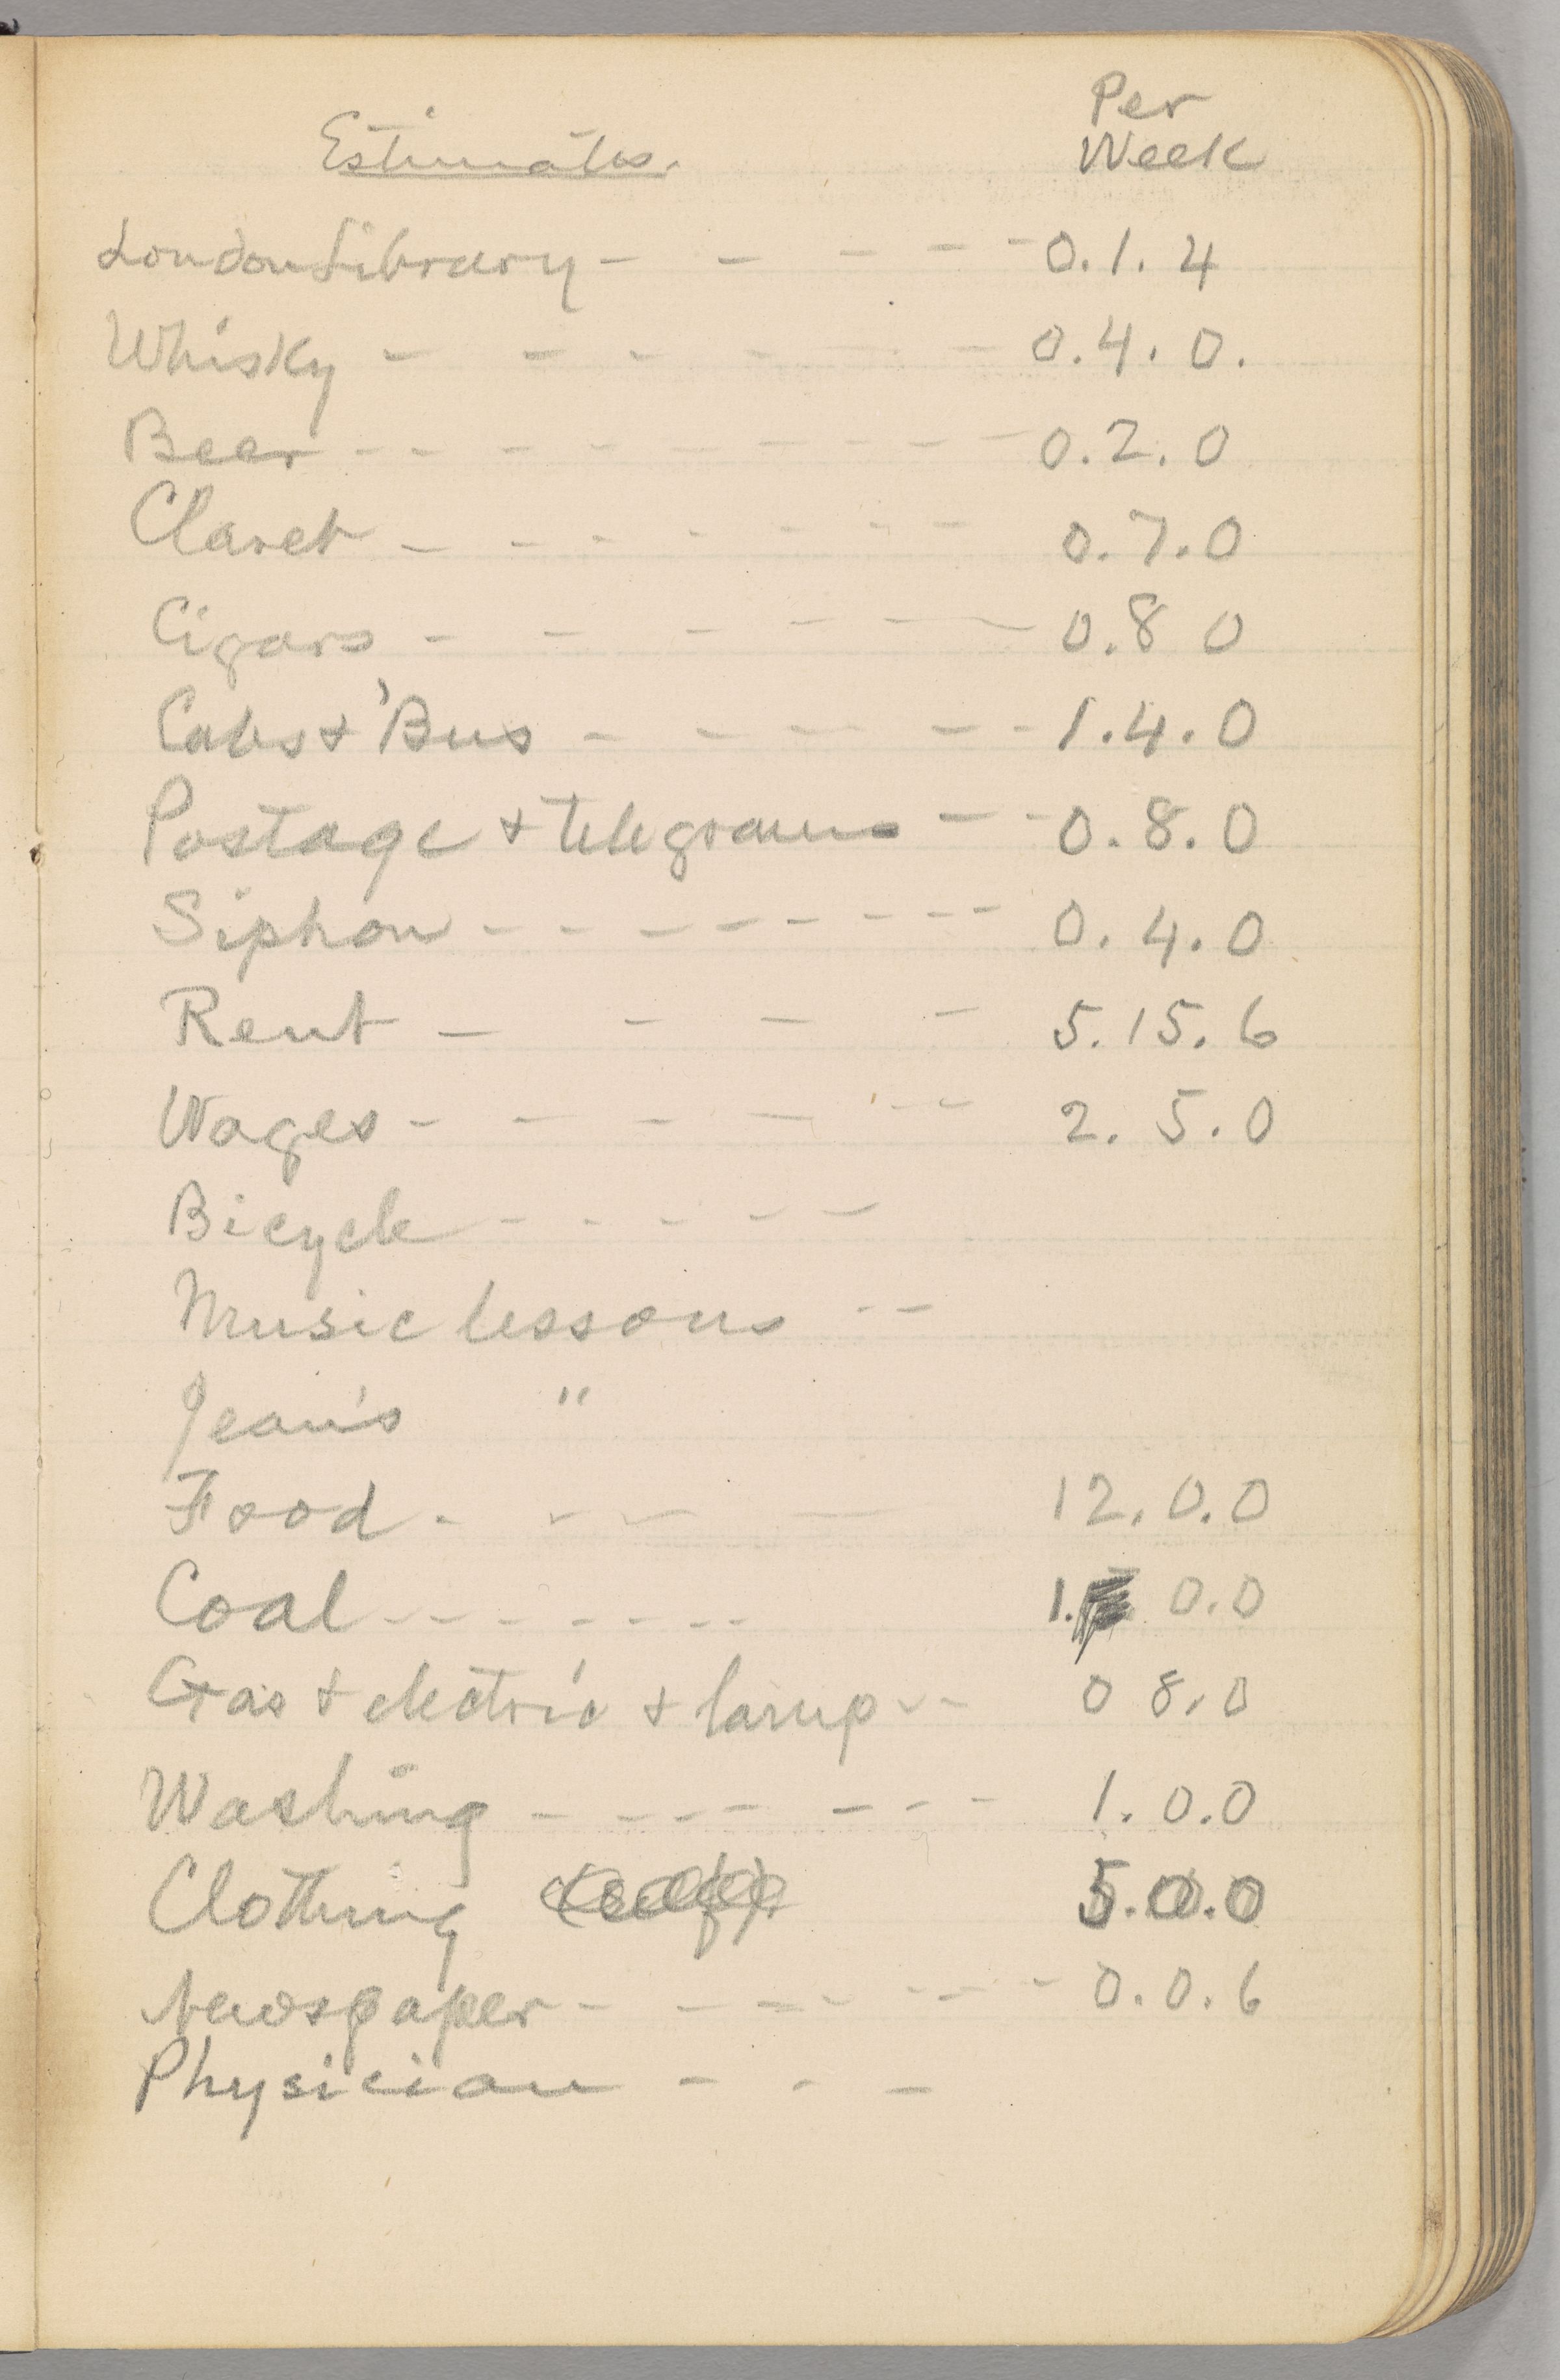 Per
Estimates. Week
London Library - - - - - 0.1.4
Whisky - - - - - - 0.4.0.
Beer - - - - - - - - 0.2.0
Claret - - - - - - - 0.7.0
Cigars - - - - - 0.8 0
Cabs & 'Bus - - - - - 1.4.0
Postage & telegrams - - 0.8.0
Siphon - - - - - - - - 0.4.0
Rent - - - - 5.15.6
Wages - - - - - - 2.5.0
Bicycle - - - - -
Music lessons - -
Jean's "
Food - - - - 12.0.0
Coal - - - - - - - 1. 0.0
Gas & electric & lamp - - 0 8.0
Washing - - - - - - - 1.0.0
Clothing 5.0.0
Newspaper - - - - - - - 0.0.6
Physician - - -